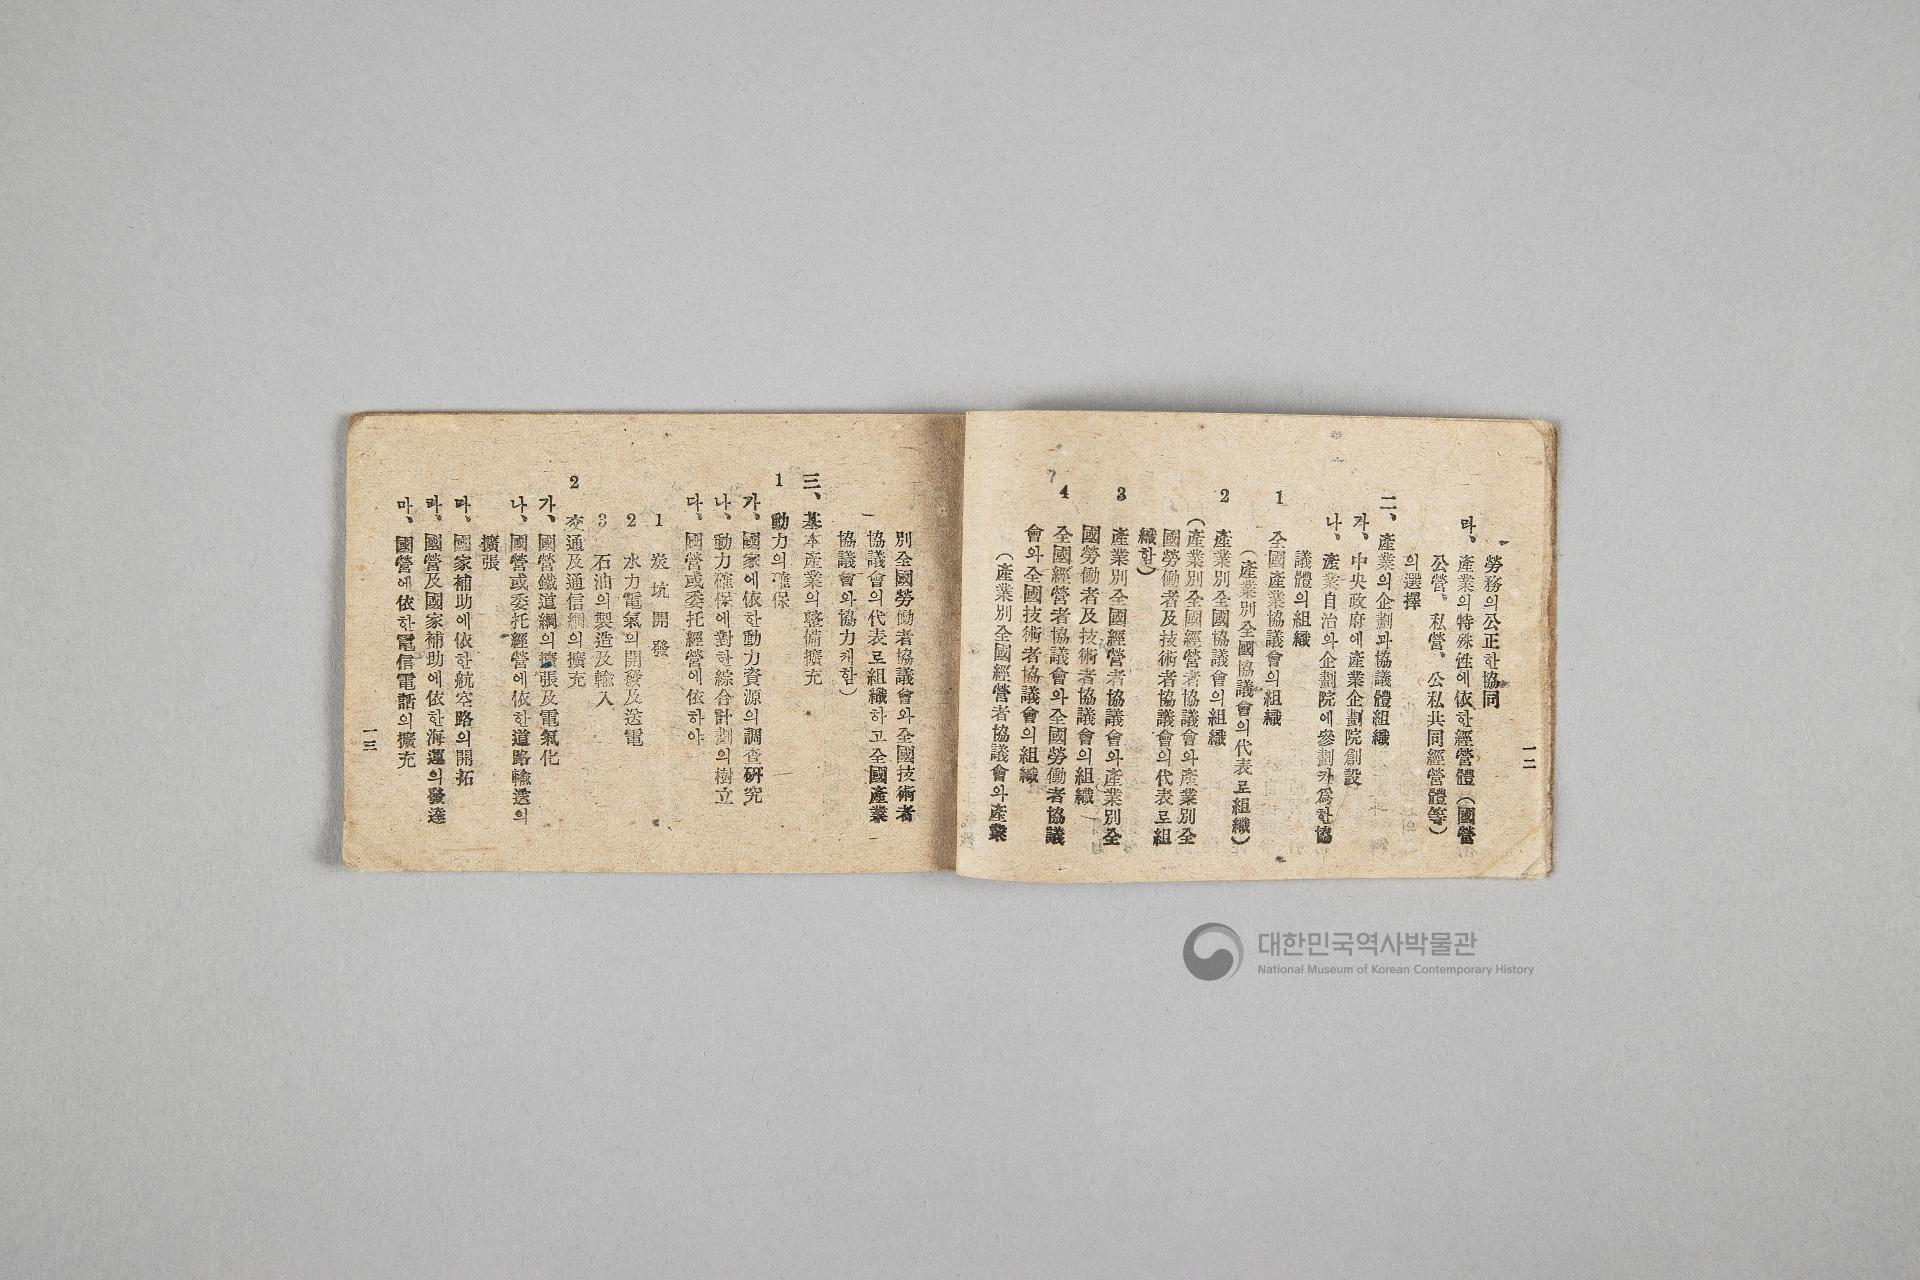 勞務의公正한協同
라、產業의特殊性에依한經營體(國營
公營、私營、公私共同經營體等)
의選擇
二、產業의企劃과協議體組織
가、中央政府에產業企劃院創設
나、產業自治와企劃院에參劃키爲한協
議體의組織
1 全國產業協議會의組織
(產業別全國協議會의代表로組織)
2 產業別全國協議會의組織
(產業別全國經營者協議會와產業別全
國勞働者及技術者協議會의代表로組
織함)
3 產業別全國經營者協議會와產業別全
國勞働者及技術者協議會의組織
4 全國經營者協議會와全國勞働者協議
會와全國技術者協議會의組織
(產業別全國經營者協議會와產業
一二
別全國勞働者協議會와全國技術者
協議會의代表로組織하고全國產業
協議會와協力케함)
三、基本產業의整備擴充
1 動力의確保
가、國家에依한動力資源의調查硏究
나、動力確保에對한綜合計劃의樹立
다、國營或委托經營에依하야
1 炭坑開發
2 水力電氣의開發及送電
3 石油의製造及輸入
2 交通及通信綱의擴充
가、國營鐵道綱의擴張及電氣化
나、國營或委托經營에依한道路輸送의
擴張
다、國家補助에依한航空路의開拓
라、國營及國家補助에依한海運의發達
마、國營에依한電信電話의擴充
一三
대한민국역사박물관
National Museum of Korean Contemporary History